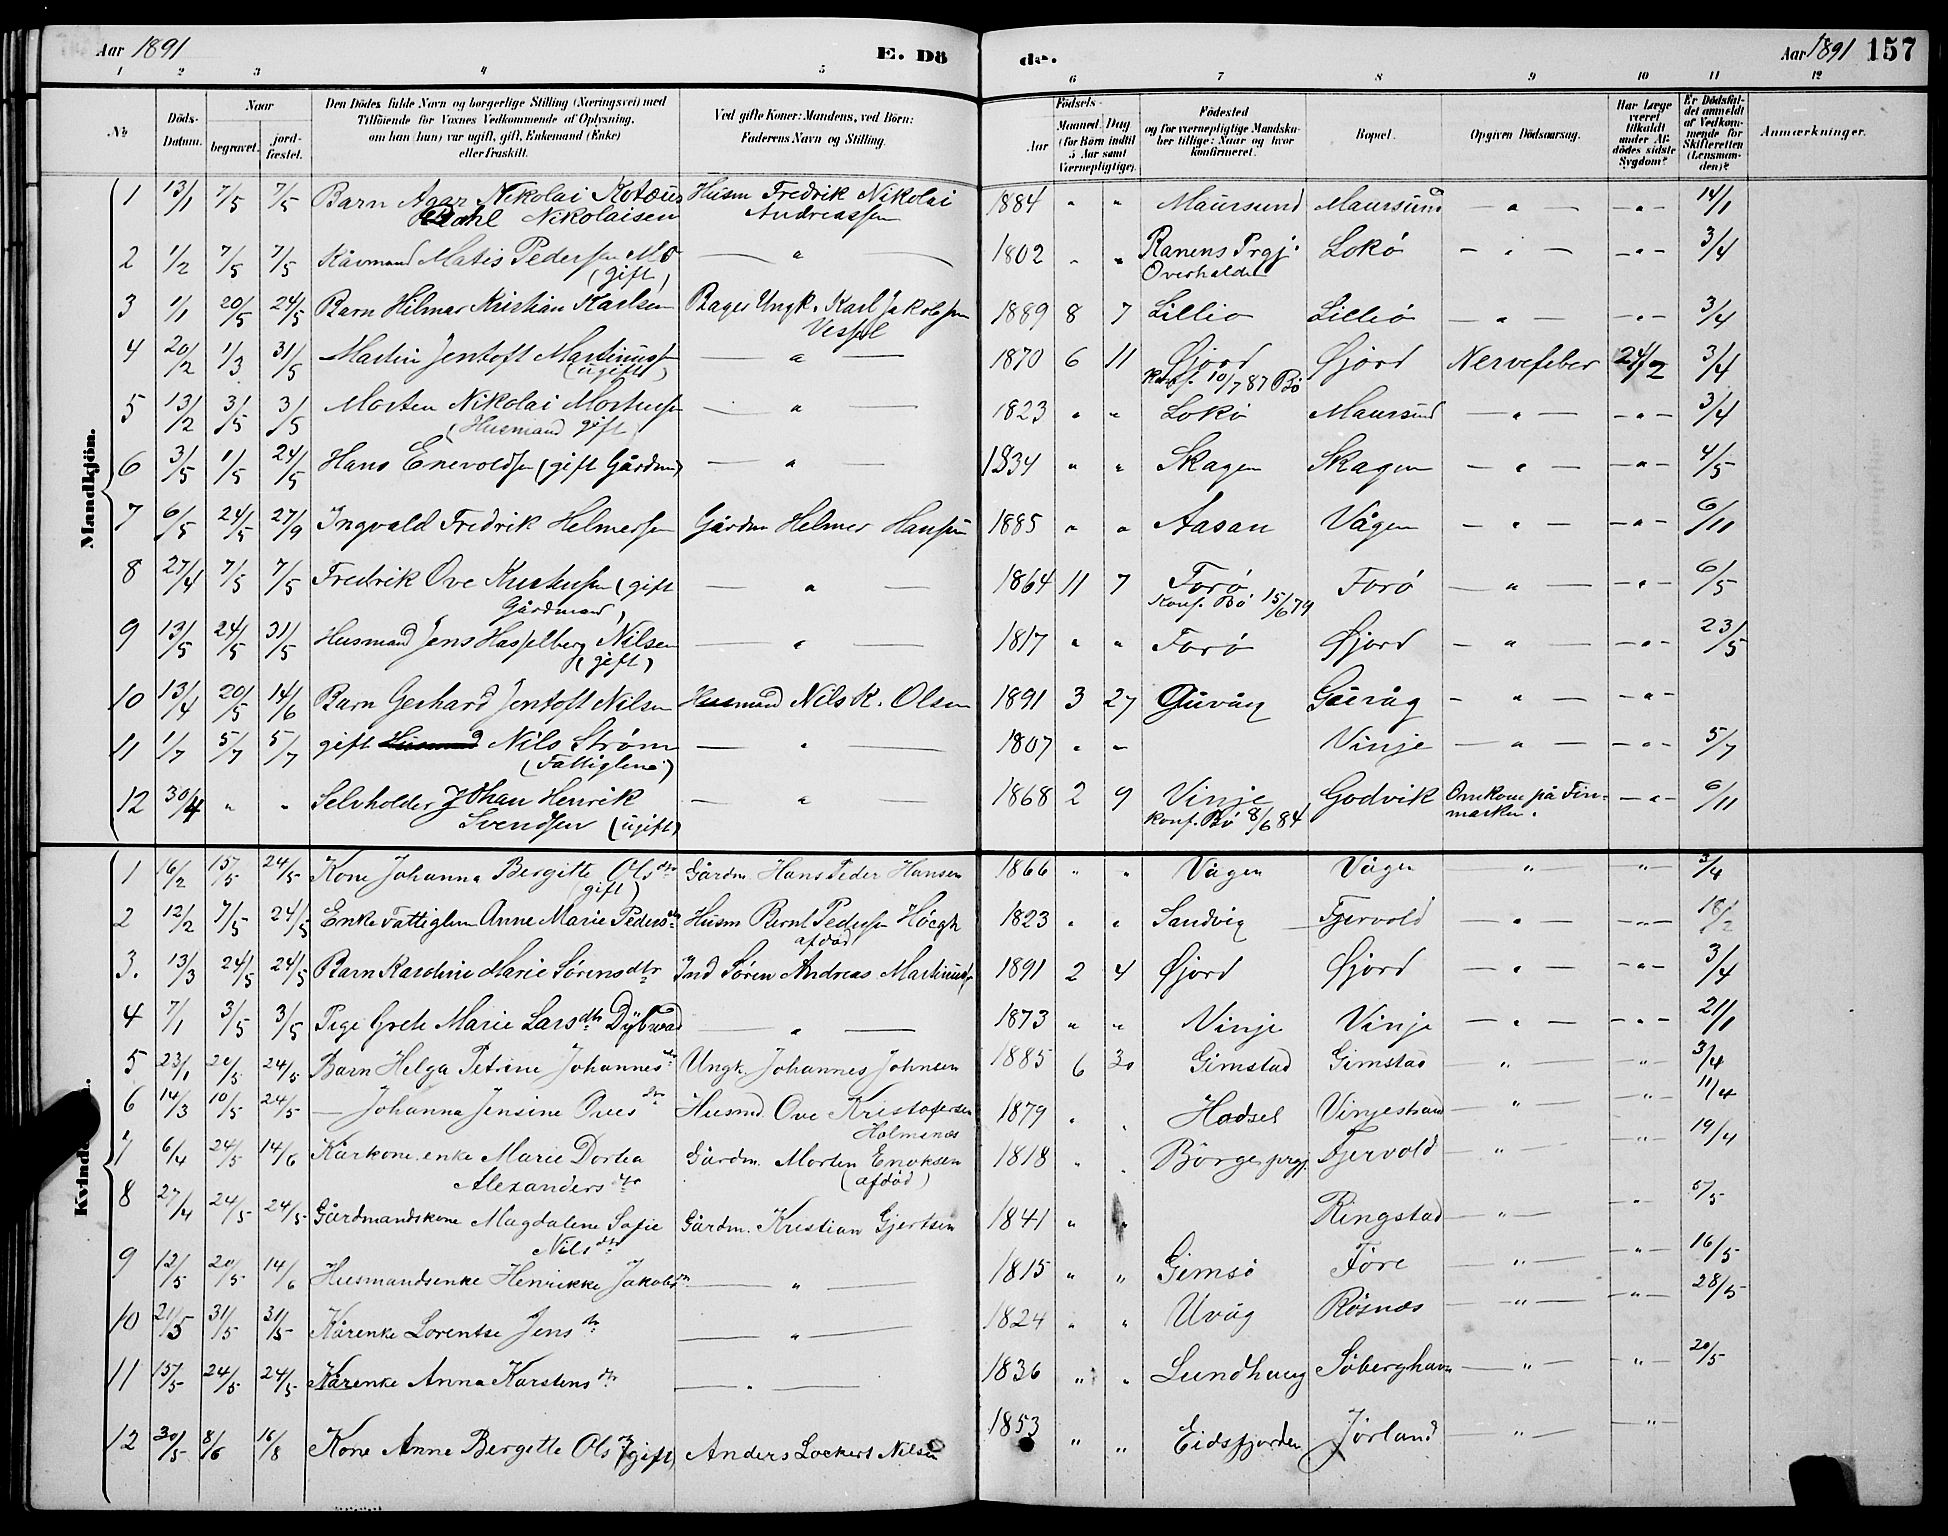 Aar 1891 E. Dö de. Aar 1891 157
1 2 3 4 5 6 7 8 9 10 11 12
No
Döds-Datum.
Naar
begravet.
jord-fæstet.
Den Dödes fulde Navn og borgerlige Stilling (Næringsvei) med
Tilföiende for Voxnes Vedkommende af Oplysning,
om han (hun) var ugift, gift, Enkemand (Enke)
eller fraskilt.
Ved gifte Koner: Mandens, ved Börn:
Faderens Navn og Stilling.
Födsels-
Aar
Maaned. Dag
(for Börn indtil
5 Aar samt
Værnepligtige).
Födested
og for værnepligtige Mandska-
ber tillige: Naar og hvor
konfirmeret.
Bopæl.
Opgiven Dödsaarsag.
Har Læge
været
tilkaldt
under Af-
dödes sidste
Sygdom?
Er Dödsfal-
det anmeldt
af Vedkom-
mende for
Skifteretten
(Lensman-
den)?
Anmærkninger.
Mandkjön.
1 13/1 7/5 7/5 Barn Nikolai Husm Fredrik Nikolai 1884 " " Maursund Maursund — " — — " — 14/1
Dahl Nikolaisen Andreassen
2 1/2 7/5 7/5 Kårmand Matis Pedersen Mo — " — 1802 " " Ranens Prgj. Lokö — " — — " — 3/4
(gift) Overhalden
3 1/1 20/5 24/5 Barn Hilmar Kristian Karlsen Bager Ungk. Karl Jakobsen 1889 8 7 Lilliö Lilliö — " — — " — 3/4
4 20/2 1/3 31/5 Martin Jentoft Martinussen — " — 1870 6 11 Øjord Øjord Nervefeber 24/2 3/4
(ugift) Konf. 10/7 87 Bö
5 13/2 3/5 3/5 Morten Nikolai Mortensen — " — 1823 " " Lokö Maursund — " — — " — 3/4
(Husmand gift)
6 3/5 1/5 24/5 Hans Enevoldsen (gift Gårdm) — " — 1834 " " Skagen Skagen — " — — " — 4/5
7 6/5 24/5 27/9 Ingvald Fredrik Helmersen Gårdm Helmer Hansen 1885 " " Aasan Vågen — " — — " — 6/11
8 27/4 7/5 7/5 Fredrik Ove (gift — " — 1864 11 7 Forö Forö — " — — " — 6/5
Gårdmand) Konf. Bö 15/6 79
9 13/5 24/5 31/5 Husmand Jens Hasselberg Nilsen — " — 1817 " " Forö Øjord — " — — " — 23/5
(gift)
10 13/4 20/5 14/6 Barn Gerhard Jentoft Nilsen Husmand Nils K. Olsen 1891 3 27 Guvåg Guvåg — " — — " —
11 1/7 5/7 5/7 gift Husmand Nils Strøm — " — 1807 " " Vinje — " — — " — 5/7
(Fattiglem)
12 30/4 " " Selvholder Johan Henrik — " — 1868 2 9 Vinje Godvik Omkom på Fin- — " — 6/11
Svendsen (ugift) Konf. Bö 8/6 84 marken.
1 16/2 15/5 24/5 Kone Johanna Bergitte Olsdtr Gårdm. Hans Peder Hansen 1866 " " Vågen Vågen " " 3/4
(gift)
2 12/2 7/5 24/5 Enke Fattiglem Anne Marie Pedersdtr Husm Bernt Pedersen Höegh 1823 " " Sandvig Fjervold — " — — " — 18/2
afdød
3. 13/3 24/5 24/5 Barn Karoline Marie Sørensdtr Ind Søren Andreas Martinussen 1891 2 4 Øjord Øjord — " — — " — 3/4
4 7/1 3/5 3/5 Pige Grete Marie Larsdtr Dybwad — " — 1873 " " Vinje Vinje — " — — " — 21/1
5 23/1 24/5 24/5 Barn Helga Petrine Johannesdtr Ungk. Johannes Johnsen 1885 6 30 Gimstad Gimstad — " — " 3/4
6 14/3 10/5 24/5 — Johanna Jensine Ovesdtr Husmd Ove Kristofersen 1879 " " Hadsel Vinjestrand — " — " 11/4
Holmenæs
7 6/4 24/5 14/6 Kårkone, enke Marie Dortea Gårdm. Morten Enoksen 1818 " " Børge prgj. Fjervold — " — " 19/4
Alexandersdtr (afdöd)
8 27/4 24/5 24/5 Gårdmandskone Magdalene Sofie Gårdm. Kristian Gjertsen 1841 " " Ringstad — " — — " — 5/5
Nilsdtr
9 12/5 20/5 14/6 Husmandsenke Henrikke Jakobsdtr — " — 1815 " " Gimsö Före — " — — " — 16/5
10 21/5 31/5 31/5 Kårenke Lorentse Jensdtr — " — 1824 " " Uvåg Røsnæs — " — — " — 28/5
11 15/5 24/5 24/5 Kårenke Anna Karstensdtr — " — 1836 " " Lundhaug Söberghavn — " — " 20/5
12 30/5 8/6 16/8 Kone Anne Bergitte Olsdtr (gift) Anders Lockert Nilsen 1853 " " Eidsfjorden Jörland — " — — " —